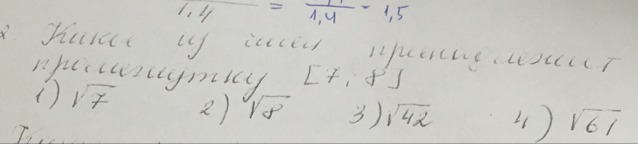 1,4 = 1,4 = 1,5
2 Какое из чисел принадлежит
промежутку [7; 8]
1) √7 2) √8 3) √42 4) √61